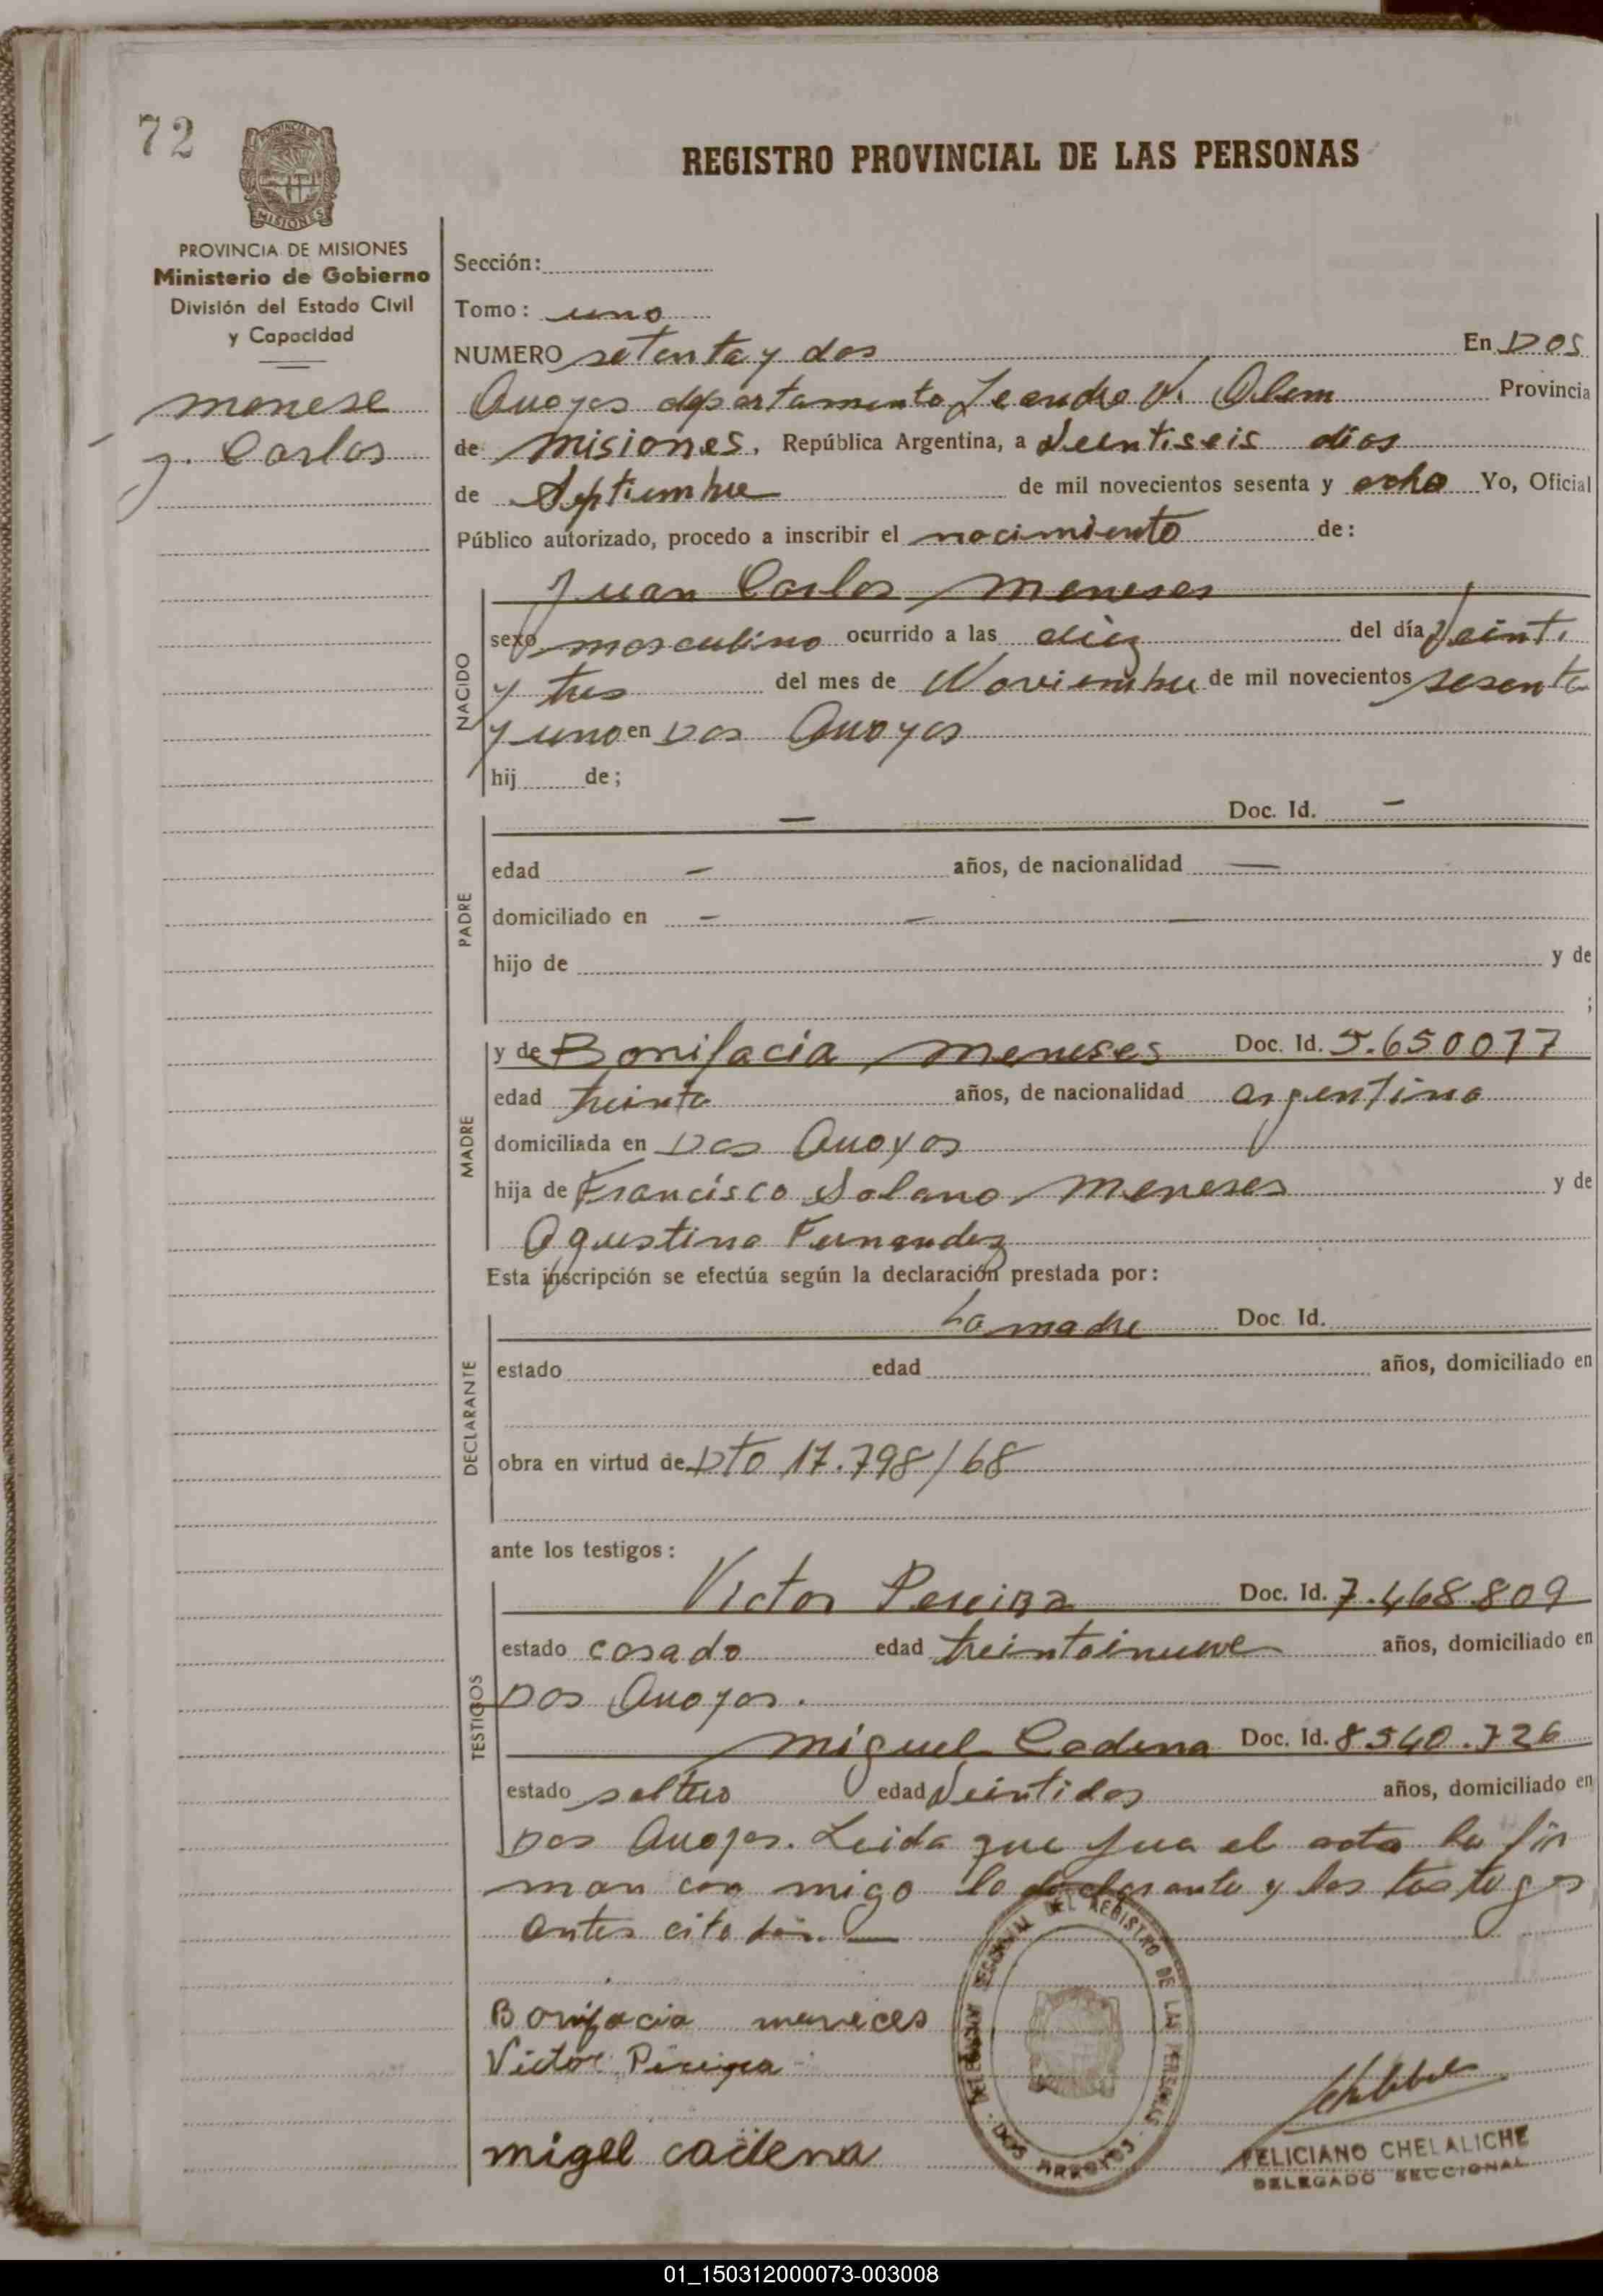 72
REGISTRO PROVINCIAL DE LAS PERSONAS
PROVINCIA DE MISIONES
MISIONES
PROVINCIA DE MISIONES
Ministerio de Gobierno
División del Estado Civil
y Capacidad
menese
J. Carlos
Sección:
Tomo: uno
NUMERO setenta y dos En Dos
Arroyos departamento Leandro N. Alem Provincia
de misiones, República Argentina, a Veintiseis dias
de Septiembre de mil novecientos sesenta y ocho Yo, Oficial
Público autorizado, procedo a inscribir el nacimiento de:
NACIDO
Juan Carlos Meneses
sexo masculino ocurrido a las diez del día Veinti
y tres del mes de Noviembre de mil novecientos sesenta
y uno en Dos Arroyos
hij de;
PADRE
— Doc. Id. —
edad — años, de nacionalidad —
domiciliado en — — —
hijo de y de
;
MADRE
y de Bonifacia Meneses Doc. Id. 5.650077
edad treinta años, de nacionalidad argentina
domiciliada en Dos Arroyos
hija de Francisco Solano Meneses y de
Agustina Fernandez
Esta inscripción se efectúa según la declaración prestada por:
DECLARANTE
La madre Doc. Id.
estado edad años, domiciliado en
obra en virtud de Dto 17.798/68
ante los testigos:
TESTIGOS
Victor Pereira Doc. Id. 7.468.809
estado casado edad treintainueve años, domiciliado en
Dos Arroyos.
Miguel Cadena Doc. Id. 8540.726
estado soltero edad Veintidos años, domiciliado en
Dos Arroyos. Leida que fua el acta la fir
man con migo la declarante y los testigos
antes citados. —
Bonifacia meneces
Victor Pereira
migel cadena
DELEGACION SECCIONAL DEL REGISTRO DE LAS PERSONAS - DOS ARROYOS -
FELICIANO CHELALICHE
DELEGADO SECCIONAL
01_150312000073-003008